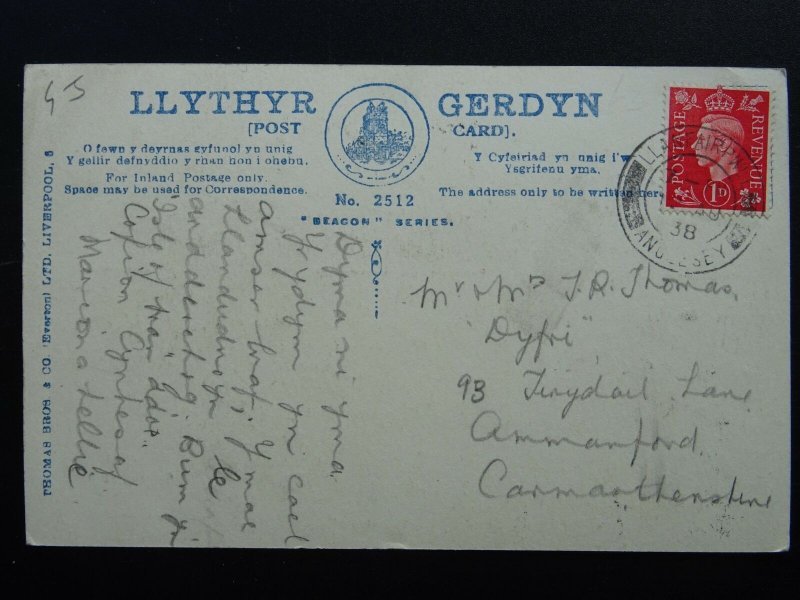 4 J
LLYTHYR GERDYN
[POST CARD].
O fewn y deyrnas gyfunol yn unig
Y gellir defnyddio y rhan hon i ohebu.
For Inland Postage only.
Space may be used for Correspondence.
Y Cyfeiriad yn unig i'w
Ysgrifenu yma.
The address only to be written here.
No. 2512
"BEACON" SERIES.
THOMAS BROS & CO (Everton) LTD. LIVERPOOL, 5
POSTAGE
REVENUE
1D
38
ANGLESEY
Dyma ni yma.
Yr ydym yn cael
amser braf, Y mae
Llandudno yn le
ardderchog. Bum yn
Isle of Man ddoe.
Cofion Cynhesaf
Marion a Nellie
Mr & Mrs J. R. Thomas,
"Dyfri"
93 Tirydail Lane
Ammanford
Carmarthenshire